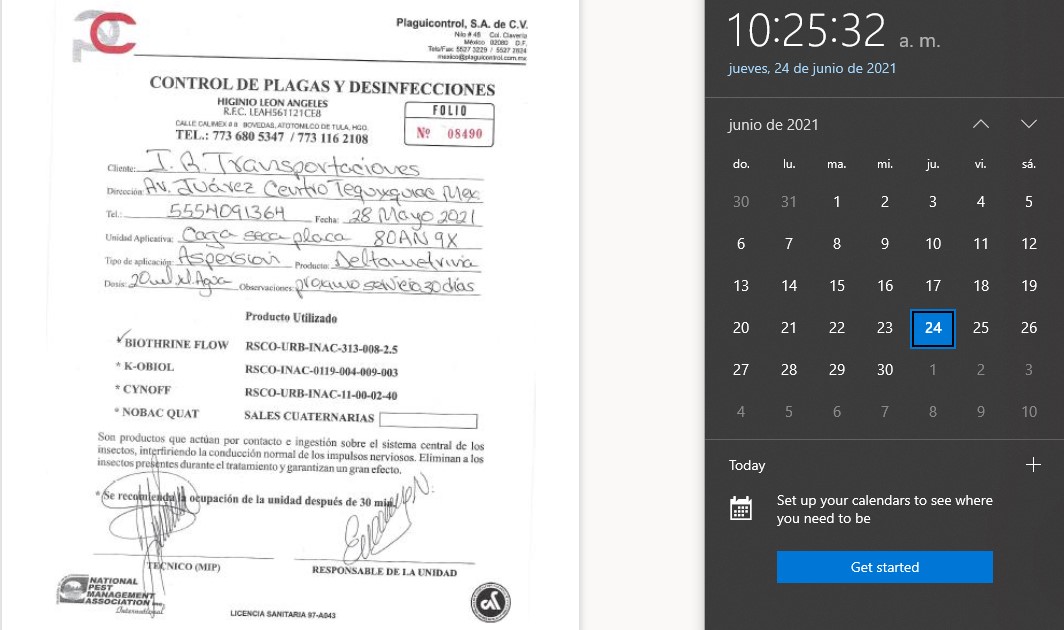 Plaguicontrol, S.A. de C.V.
Nilo # 45 Col. Clavería
México 02080 D.F.
Tels/Fax: 5527 3229 / 5527 2824
mexico@plaguicontrol.com.mx
CONTROL DE PLAGAS Y DESINFECCIONES
HIGINIO LEON ANGELES
R.F.C. LEAH561121CE8
CALLE CALIMEX # 8 BOVEDAS, ATOTONILCO DE TULA, HGO.
TEL.: 773 680 5347 / 773 116 2108
FOLIO
Nº 08490
Cliente: I.R. Transportaciones
Dirección: Av. Juárez Centro Tequixquiac Mex
Tel.: 5554091364 Fecha: 28 Mayo 2021
Unidad Aplicativa: Caja seca placa 80AN9X
Tipo de aplicación: Aspersion Producto: Deltametrivia
Dosis: 20ml xl. Agua Observaciones: proximo servicio 30 días
Producto Utilizado
BIOTHRINE FLOW RSCO-URB-INAC-313-008-2.5
* K-OBIOL RSCO-INAC-0119-004-009-003
* CYNOFF RSCO-URB-INAC-11-00-02-40
* NOBAC QUAT SALES CUATERNARIAS
Son productos que actúan por contacto e ingestión sobre el sistema central de los
insectos, interfiriendo la conducción normal de los impulsos nerviosos. Eliminan a los
insectos presentes durante el tratamiento y garantizan un gran efecto.
* Se recomienda la ocupación de la unidad después de 30 min.
TECNICO (MIP)
RESPONSABLE DE LA UNIDAD
NATIONAL
PEST
MANAGEMENT
ASSOCIATION INC.
International
LICENCIA SANITARIA 97-A043
10:25:32 a. m.
jueves, 24 de junio de 2021
junio de 2021
do. lu. ma. mi. ju. vi. sá.
30 31 1 2 3 4 5
6 7 8 9 10 11 12
13 14 15 16 17 18 19
20 21 22 23 24 25 26
27 28 29 30 1 2 3
4 5 6 7 8 9 10
Today
Set up your calendars to see where
you need to be
Get started